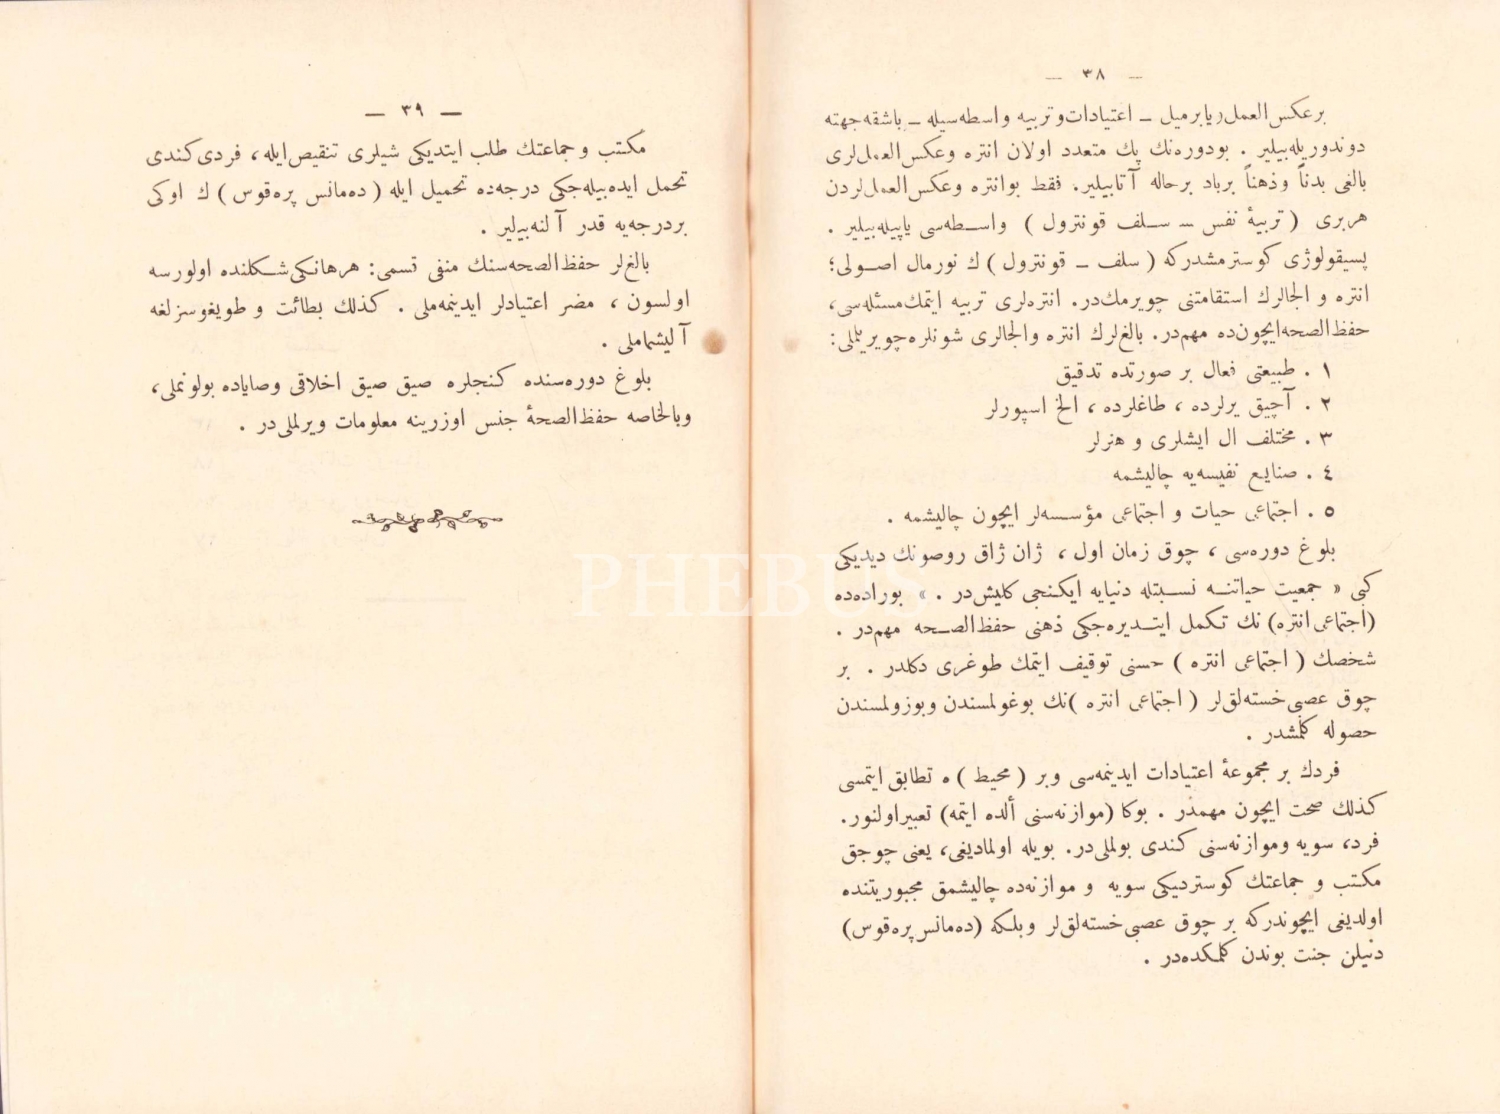 — ٣٨ —
برعكس‌العمل ویابرمیل ـ اعتیادات‌وتربیه واسطه‌سیله ـ باشقه‌جهته
دوندوریله‌بیلیر . بودوره‌نك پك متعدد اولان انتره وعكس‌العمل‌لری
بالغی بدناً وذهناً برباد برحاله آتابیلیر. فقط بوانتره وعكس‌العمل‌لردن
هربری (تربیهٔ نفس ـ سلف قونترول) واسطه‌سی یاپیله‌بیلیر .
پسیقولوژی كوسترمشدركه (سلف ـ قونترول) ك نورمال اصولی؛
انتره و الجالرك استقامتنی چویرمك‌در. انتره‌لری تربیه ایتمك‌مسئله‌سی،
حفظ‌الصحه‌ایچون‌ده مهم‌در. بالغ‌لرك انتره والجالری شونلره‌چویریلملی:
١ . طبیعتی فعال بر صورتده تدقیق
٢ . آچیق یرلرده ، طاغلرده ، الخ اسپورلر
٣ . مختلف ال ایشلری و هنرلر
٤ . صنایع نفیسه‌یه چالیشمه
٥ . اجتماعی حیات و اجتماعی مؤسسه‌لر ایچون چالیشمه .
بلوغ دوره‌سی ، چوق زمان اول ، ژان ژاق روصونك دیدیكی
كبی « جمعیت حیاتنه نسبتله دنیایه ایكنجی كلیش‌در . » بوراده‌ده
(اجتماعی انتره) نك تكمل ایتدیره‌جكی ذهنی حفظ‌الصحه مهم‌در .
شخصك (اجتماعی انتره) حسنی توقیف ایتمك طوغری دكلدر . بر
چوق عصبی خسته‌لق‌لر (اجتماعی انتره)نك بوغولمسندن وبوزولمسندن
حصوله كلمشدر .
فردك بر مجموعهٔ اعتیادات ایدینمه‌سی وبر (محیط)ه تطابق ایتمسی
كذلك صحت ایچون مهمدر . بوكا (موازنه‌سنی ألده ایتمه) تعبیراولنور.
فرد، سویه وموازنه‌سنی كندی بولملی‌در. بویله اولمادیغی، یعنی چوجق
مكتب و جماعتك كوستردیكی سویه و موازنه‌ده چالیشمق مجبوریتنده
اولدیغی ایچوندركه بر چوق عصبی خسته‌لق‌لر وبلكه (ده‌مانس پره‌قوس)
دنیلن جنت بوندن كلمكده‌در .
— ٣٩ —
مكتب وجماعتك طلب ایتدیكی شیلری تنقیص‌ایله، فردی‌كندی
تحمل ایده‌بیله‌جكی درجه‌ده تحمیل ایله (ده‌مانس پره‌قوس) ك اوكی
بردرجه‌یه قدر آلنه‌بیلیر .
بالغ‌لر حفظ‌الصحه‌سنك منفی قسمی: هرهانكی‌شكلنده اولورسه
اولسون ، مضر اعتیادلر ایدینمه‌ملی . كذلك بطائت و طویغوسزلغه
آلیشماملی .
بلوغ دوره‌سنده كنجلره صیق صیق اخلاقی وصایاده بولونملی،
وبالخاصه حفظ‌الصحهٔ جنس اوزرینه معلومات ویرلملی‌در .
PHEBUS